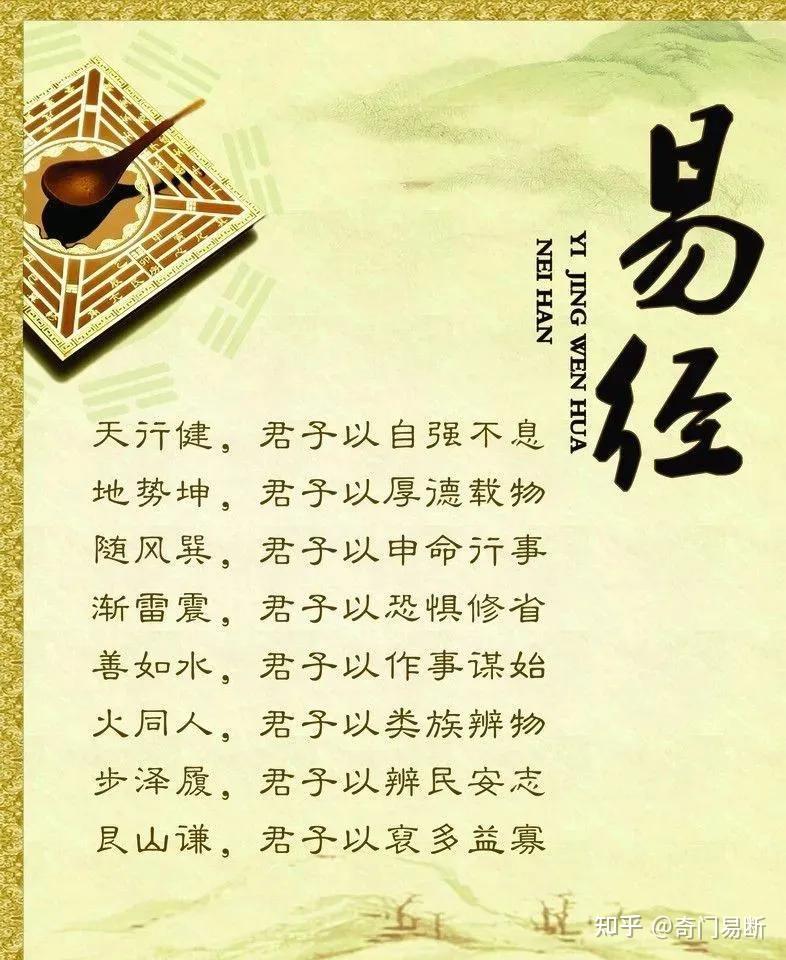 易经
YI JING WEN HUA
NEI HAN
天行健，君子以自强不息
地势坤，君子以厚德载物
随风巽，君子以申命行事
渐雷震，君子以恐惧修省
善如水，君子以作事谋始
火同人，君子以类族辨物
步泽履，君子以辨民安志
艮山谦，君子以裒多益寡
知乎 @奇门易断